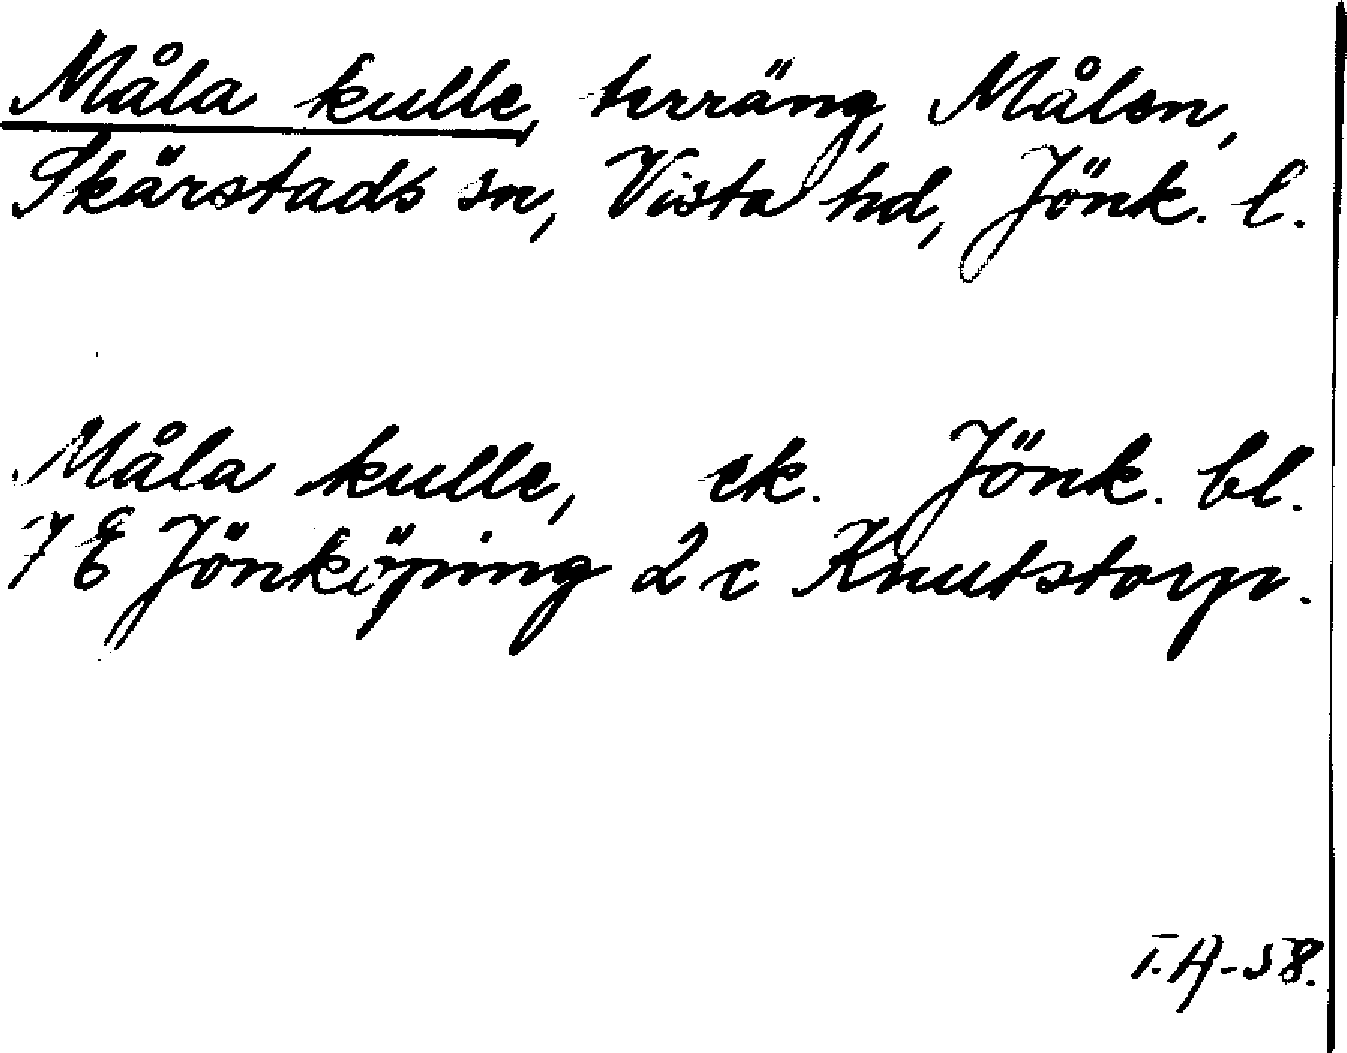 Måla kulle, terräng, Målen,
Skärstads sn, Vista hd, Jönk. l.
Måla kulle, ek. Jönk. bl.
7 E Jönköping 2 c Knutstorp.
T.A-58.